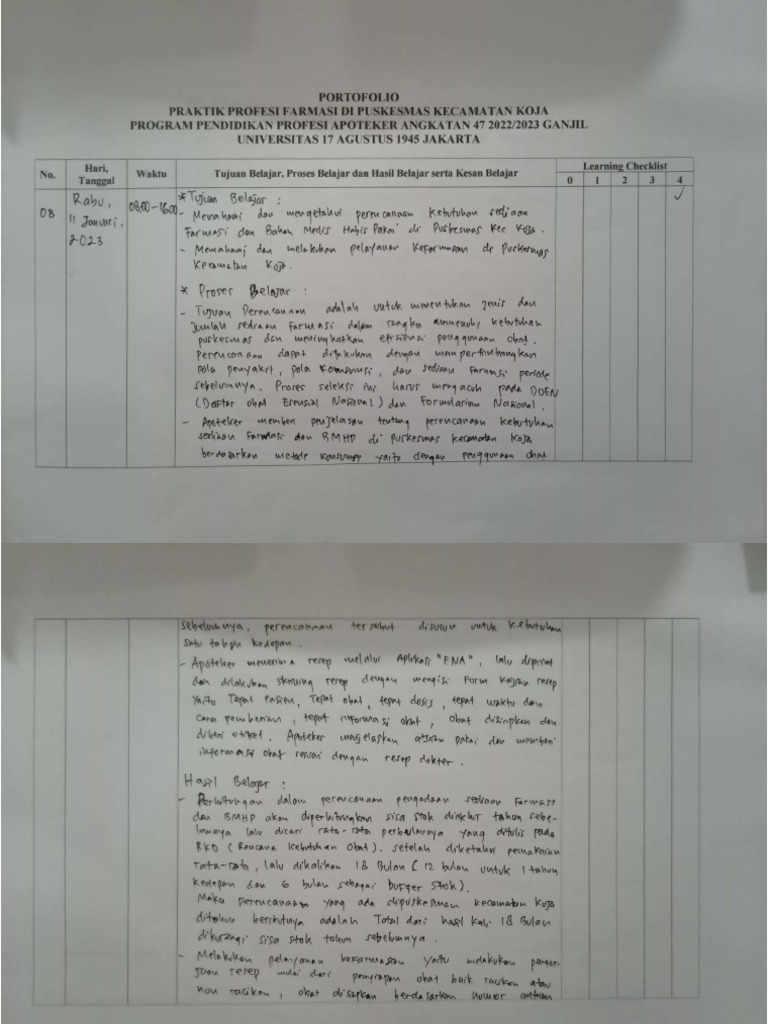 PORTOFOLIO
PRAKTIK PROFESI FARMASI DI PUSKESMAS KECAMATAN KOJA
PROGRAM PENDIDIKAN PROFESI APOTEKER ANGKATAN 47 2022/2023 GANJIL
UNIVERSITAS 17 AGUSTUS 1945 JAKARTA
No. Hari, Tanggal Waktu Tujuan Belajar, Proses Belajar dan Hasil Belajar serta Kesan Belajar Learning Checklist
0 1 2 3 4
08 Rabu, 11 Januari, 2023 08.00-16.00 ✓
* Tujuan Belajar :
- Memahami dan mengetahui perencanaan kebutuhan sediaan
Farmasi dan Bahan Medis Habis Pakai di Puskesmas Kec Koja.
- Memahami dan melakukan pelayanan kefarmasian di Puskesmas
Kecamatan Koja.
* Proses Belajar :
- Tujuan Perencanaan adalah untuk menentukan jenis dan
jumlah sediaan farmasi dalam rangka memenuhi kebutuhan
puskesmas dan meningkatkan efisiensi penggunaan obat.
perencanaan dapat dilakukan dengan mempertimbangkan
pola penyakit, pola konsumsi, dan sediaan farmasi periode
sebelumnya. Proses seleksi ini harus mengacu pada DOEN
(Daftar Obat Esensial Nasional) dan Formularium Nasional.
- Apoteker memberi penjelasan tentang perencanaan kebutuhan
sediaan Farmasi dan BMHP di puskesmas kecamatan Koja
berdasarkan metode konsumsi yaitu dengan penggunaan obat
sebelumnya, perencanaan tersebut disusun untuk kebutuhan
satu tahun kedepan.
- Apoteker menerima resep melalui Aplikasi "ENA", lalu diprint
dan dilakukan skrining resep dengan mengisi Form kajian resep
yaitu Tepat Pasien, Tepat obat, tepat dosis, tepat waktu dan
cara pemberian, tepat informasi obat, obat disiapkan dan
diberi etiket. Apoteker menjelaskan aturan pakai dan memberi
informasi obat sesuai dengan resep dokter.
Hasil Belajar :
- Perhitungan dalam perencanaan pengadaan sediaan Farmasi
dan BMHP akan diperhitungkan sisa stok diakhir tahun sebe-
lumnya lalu dicari rata-rata perbulannya yang ditulis pada
RKO (Rencana Kebutuhan Obat). setelah diketahui pemakaian
rata-rata, lalu dikalikan 18 Bulan (12 bulan untuk 1 tahun
kedepan dan 6 bulan sebagai buffer stok).
Maka perencanaan yang ada dipuskesmas kecamatan Koja
ditahun berikutnya adalah Total dari hasil kali 18 Bulan
dikurangi sisa stok tahun sebelumnya.
- Melakukan pelayanan kefarmasian yaitu melakukan
resep mulai dari penyiapan obat baik racikan atau
non racikan, obat disiapkan berdasarkan nomor antrian